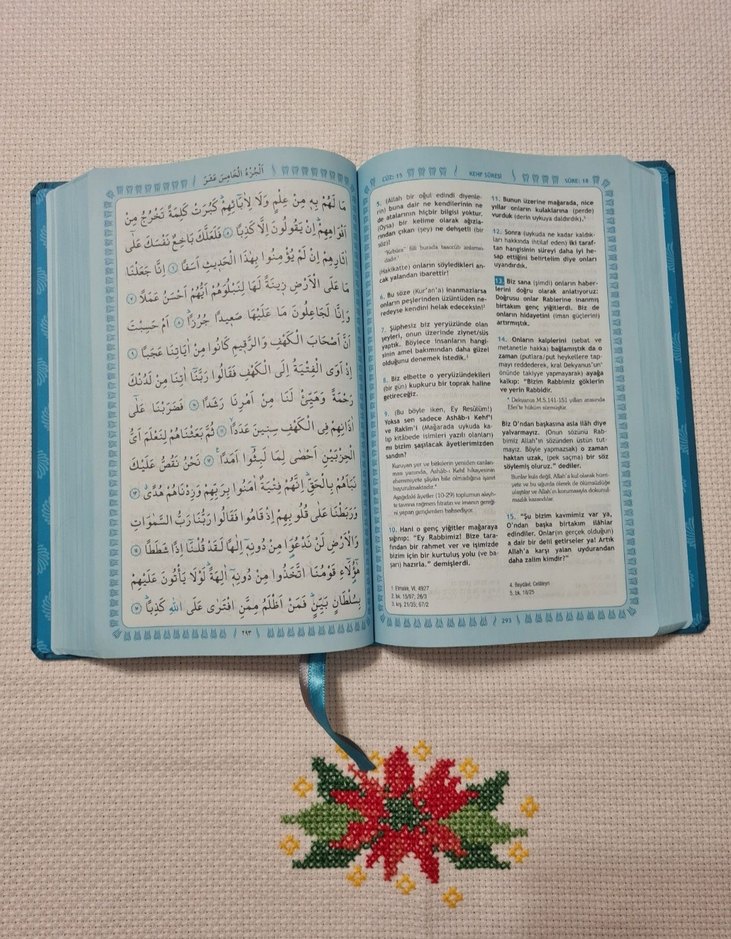 اَلْجُزْءُ الْخَامِسَ عَشَرَ
مَا لَهُمْ بِهٖ مِنْ عِلْمٍ وَلَا لِاٰبَائِهِمْ كَبُرَتْ كَلِمَةً تَخْرُجُ مِنْ
اَفْوَاهِهِمْ اِنْ يَقُولُونَ اِلَّا كَذِبًا ﴿٥﴾ فَلَعَلَّكَ بَاخِعٌ نَفْسَكَ عَلٰٓى
اٰثَارِهِمْ اِنْ لَمْ يُؤْمِنُوا بِهٰذَا الْحَدٖيثِ اَسَفًا ﴿٦﴾ اِنَّا جَعَلْنَا
مَا عَلَى الْاَرْضِ زٖينَةً لَهَا لِنَبْلُوَهُمْ اَيُّهُمْ اَحْسَنُ عَمَلًا ﴿٧﴾
وَاِنَّا لَجَاعِلُونَ مَا عَلَيْهَا صَعٖيدًا جُرُزًا ﴿٨﴾ اَمْ حَسِبْتَ
اَنَّ اَصْحَابَ الْكَهْفِ وَالرَّقٖيمِ كَانُوا مِنْ اٰيَاتِنَا عَجَبًا ﴿٩﴾
اِذْ اَوَى الْفِتْيَةُ اِلَى الْكَهْفِ فَقَالُوا رَبَّنَا اٰتِنَا مِنْ لَدُنْكَ
رَحْمَةً وَهَيِّئْ لَنَا مِنْ اَمْرِنَا رَشَدًا ﴿١٠﴾ فَضَرَبْنَا عَلٰٓى
اٰذَانِهِمْ فِي الْكَهْفِ سِنٖينَ عَدَدًا ﴿١١﴾ ثُمَّ بَعَثْنَاهُمْ لِنَعْلَمَ اَيُّ
الْحِزْبَيْنِ اَحْصٰى لِمَا لَبِثُوا اَمَدًا ﴿١٢﴾ نَحْنُ نَقُصُّ عَلَيْكَ
نَبَاَهُمْ بِالْحَقِّ اِنَّهُمْ فِتْيَةٌ اٰمَنُوا بِرَبِّهِمْ وَزِدْنَاهُمْ هُدًى ﴿١٣﴾
وَرَبَطْنَا عَلٰى قُلُوبِهِمْ اِذْ قَامُوا فَقَالُوا رَبُّنَا رَبُّ السَّمٰوَاتِ
وَالْاَرْضِ لَنْ نَدْعُوَا مِنْ دُونِهٖٓ اِلٰهًا لَقَدْ قُلْنَٓا اِذًا شَطَطًا ﴿١٤﴾
هٰٓؤُلَٓاءِ قَوْمُنَا اتَّخَذُوا مِنْ دُونِهٖٓ اٰلِهَةً لَوْلَا يَأْتُونَ عَلَيْهِمْ
بِسُلْطَانٍ بَيِّنٍ فَمَنْ اَظْلَمُ مِمَّنِ افْتَرٰى عَلَى اللّٰهِ كَذِبًا ﴿١٥﴾
٢٩٣
CÜZ: 15 KEHF SÛRESİ SÛRE: 18
5. (Allah bir oğul edindi diyenle-
rin) buna dair ne kendilerinin ne
de atalarının hiçbir bilgisi yoktur.
(Oysa) bir kelime olarak ağızla-
rından çıkan (şey) ne dehşetli (bir
söz)!
"Kebüra" fiili burada taaccüb anlamın-
dadır.
(Hakikatte) onların söyledikleri an-
cak yalandan ibarettir!
6. Bu söze (Kur'an'a) inanmazlarsa
onların peşlerinden üzüntüden ne-
redeyse kendini helak edeceksin!
7. Şüphesiz biz yeryüzünde olan
şeyleri, onun üzerinde ziynet/süs
yaptık. Böylece insanların hangi-
sinin amel bakımından daha güzel
olduğunu denemek istedik.
8. Biz elbette o yeryüzündekileri
(bir gün) kupkuru bir toprak haline
getireceğiz.
9. (Bu böyle iken, Ey Resülüm!)
Yoksa sen sadece Ashâb-ı Kehf'i
ve Rakîm'i (Mağarada uykuda ka-
lıp kitâbede isimleri yazılı olanları)
mı bizim şaşılacak âyetlerimizden
sandın?
Kuruyan yer ve bitkilerin yeniden canlan-
ması yanında, Ashâb-ı Kehf hikâyesinin
ehemmiyetle şâyân bile olmadığına işaret
buyurulmaktadır.
Aşağıdaki âyetler (10-29) toplumun aleyh-
te tavrına rağmen fıtratın ve imanın gereği-
ni yapan gençlerden bahsediyor.
10. Hani o genç yiğitler mağaraya
sığınıp; "Ey Rabbimiz! Bize tara-
fından bir rahmet ver ve işimizde
bizim için bir kurtuluş yolu (ve ba-
şarı) hazırla." demişlerdi.
11. Bunun üzerine mağarada, nice
yıllar onların kulaklarına (perde)
vurduk (derin uykuya daldırdık).
12. Sonra (uykuda ne kadar kaldık-
ları hakkında ihtilaf eden) iki taraf-
tan hangisinin daha iyi he-
sap ettiğini belirtelim diye onları
uyandırdık.
13. Biz sana (şimdi) onların haber-
lerini doğru olarak anlatıyoruz:
Doğrusu onlar Rablerine inanmış
birtakım genç yiğitlerdi. Biz de
onların hidayetini (iman güçlerini)
artırmıştık.
14. Onların kalplerini (sebat ve
metanetle hakka) bağlamıştık da o
zaman (putlara/put heykellere tap-
mayı reddederek, kral Dekyanus'un
önünde takiyye yapmayarak) ayağa
kalkıp: "Bizim Rabbimiz göklerin
ve yerin Rabbidir.
* Dekyanus M.S.141-151 yılları arasında
Efes'te hüküm sürmüştür.
Biz O'ndan başkasına asla ilâh diye
yalvarmayız. (Onun sözünü Rab-
bimiz Allah'ın sözünden üstün tut-
mayız. Böyle yapmazsak) o zaman
haktan uzak, (pek saçma) bir söz
söylemiş oluruz." dediler.
15. "Şu bizim kavmimiz var ya,
O'ndan başka birtakım ilâhlar
edindiler. Onların(n gerçek olduğun)
a dair bir delil getirseler ya! Artık
Allah'a karşı yalan uydurandan
daha zalim kimdir?"
2. bk. 15/97; 26/3
3. krş. 21/35; 67/2
4. Beydâvî, Celâleyn
5. bk. 18/25
293